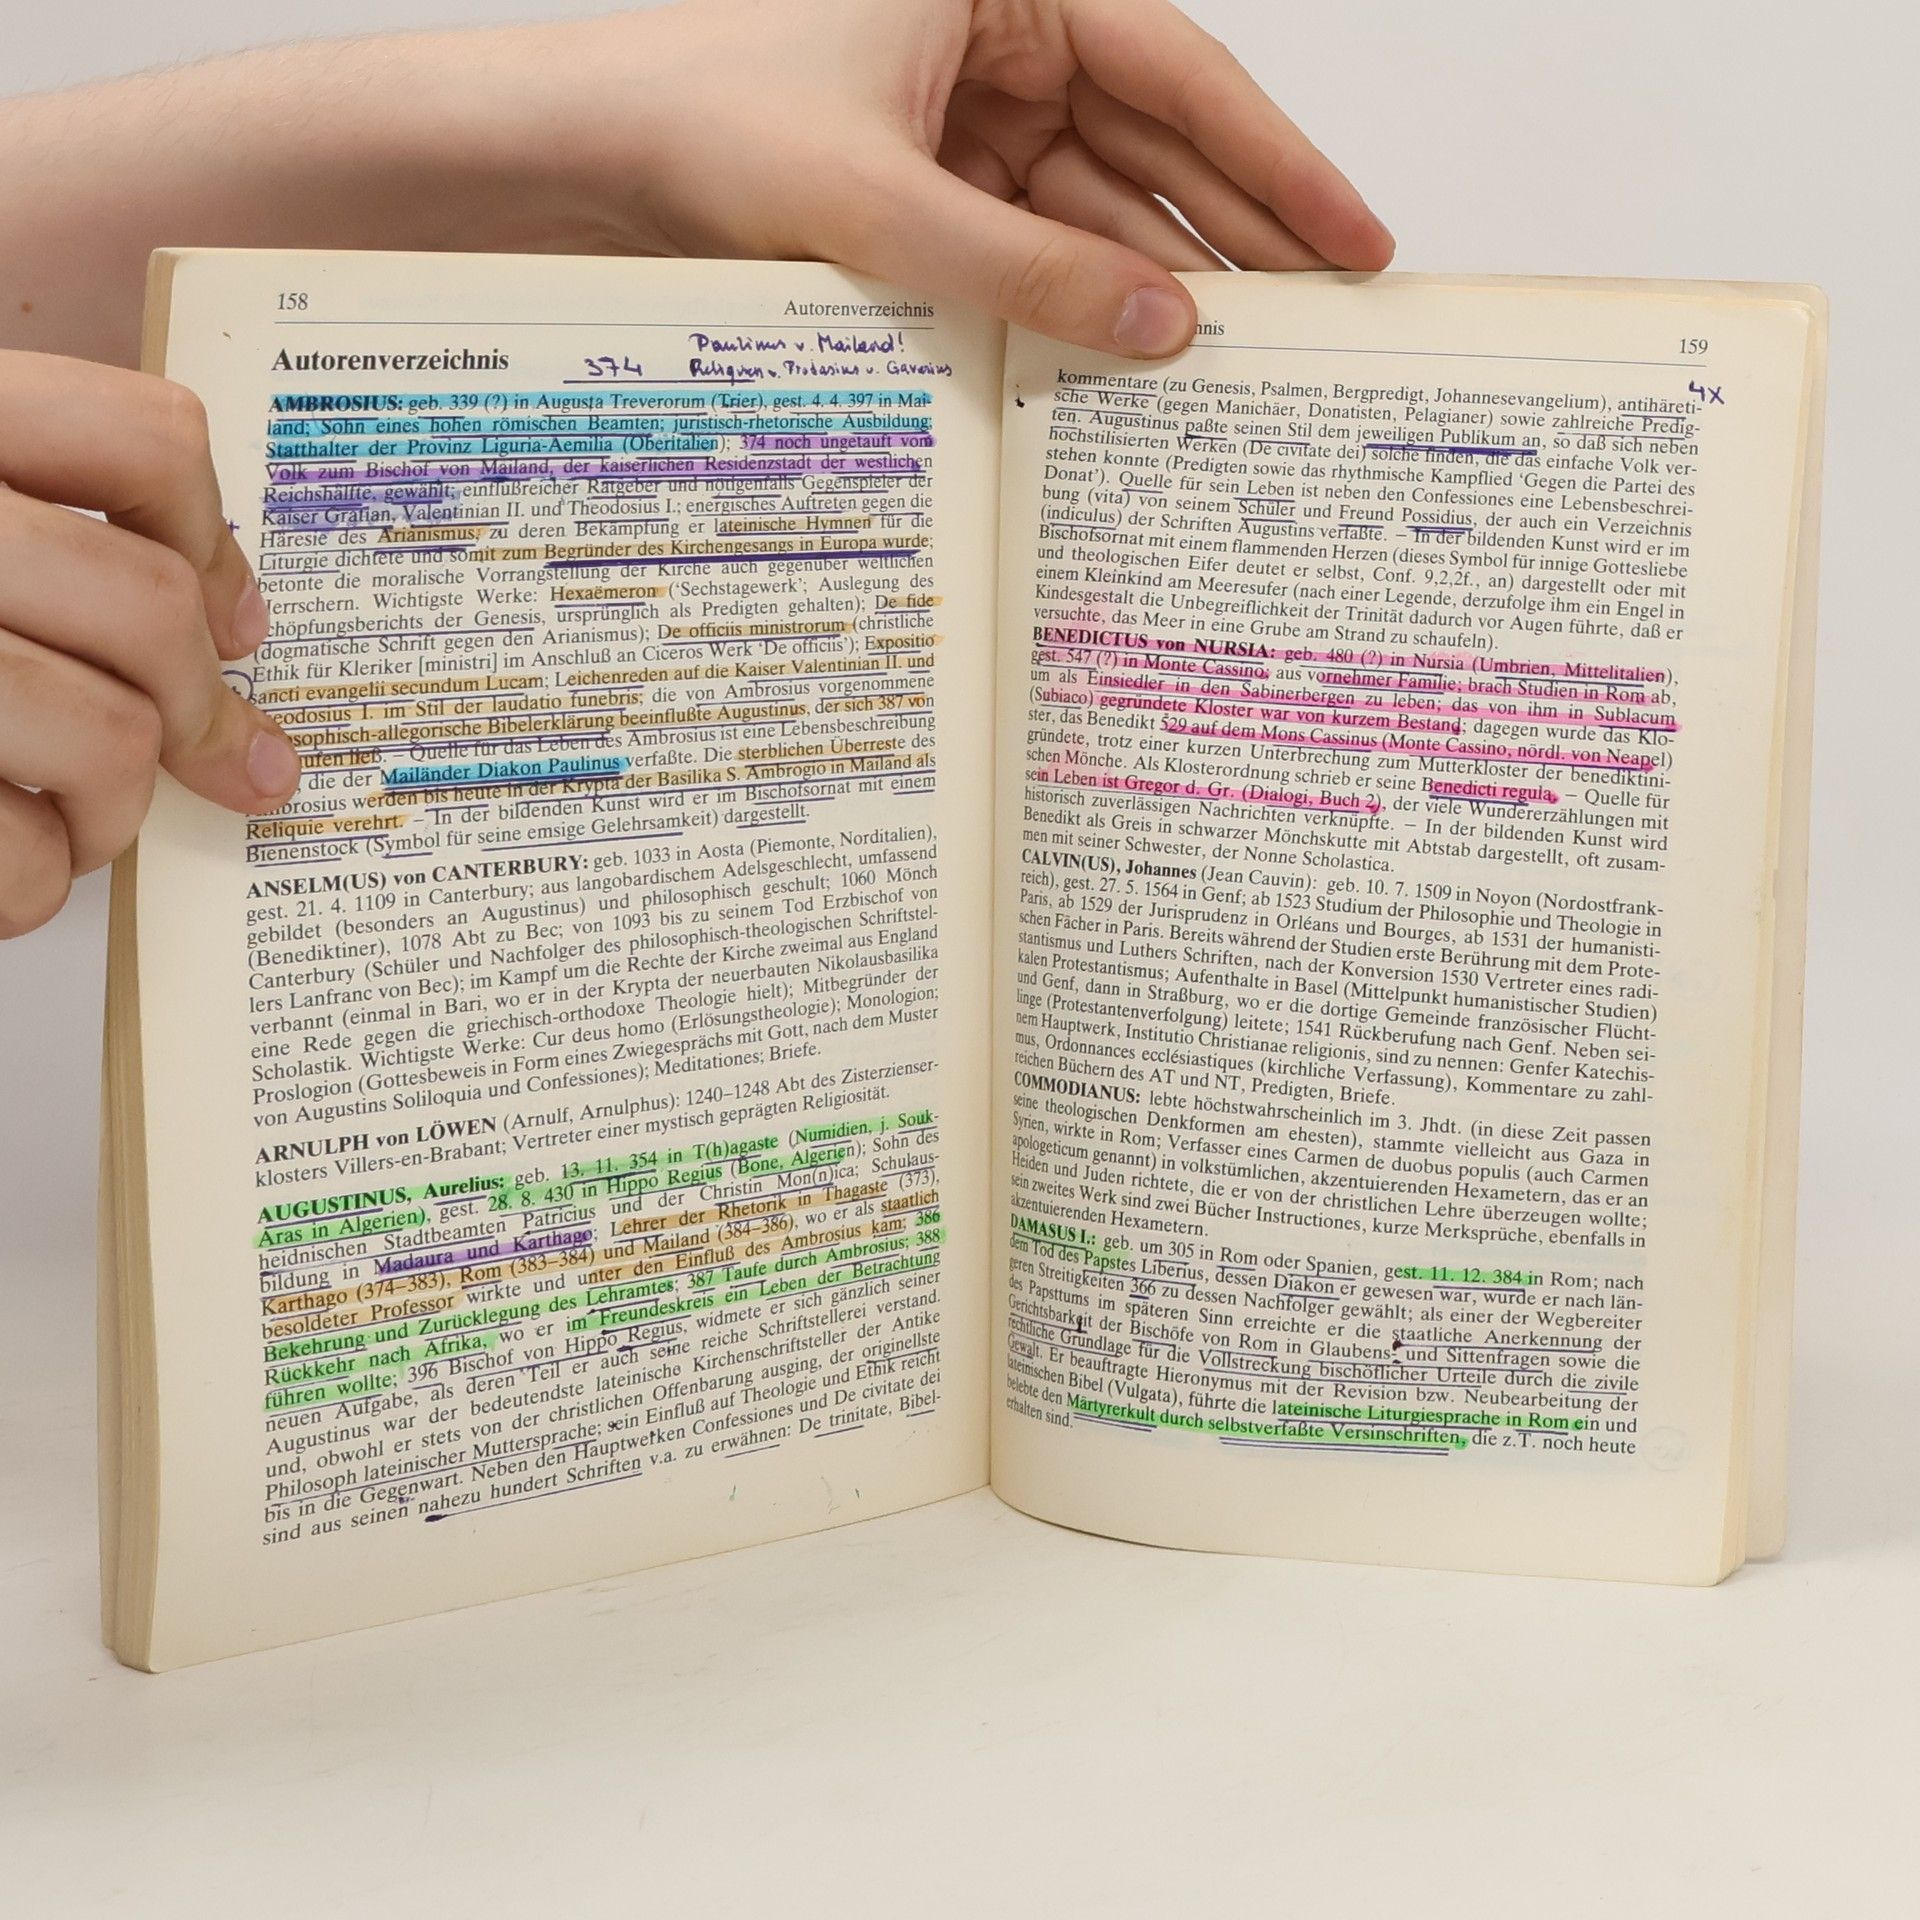 158 Autorenverzeichnis
Autorenverzeichnis 374 Paulinus v. Mailand!
Reliquien v. Protasius u.
AMBROSIUS: geb. 339 (?) in Augusta Treverorum (Trier), gest. 4. 4. 397 in Mai-
land; Sohn eines hohen römischen Beamten; juristisch-rhetorische Ausbildung;
Statthalter der Provinz Liguria-Aemilia (Oberitalien); 374 noch ungetauft vom
Volk zum Bischof von Mailand, der kaiserlichen Residenzstadt der westlichen
Reichshälfte, gewählt; einflußreicher Ratgeber und nötigenfalls Gegenspieler der
Kaiser Gratian, Valentinian II. und Theodosius I.; energisches Auftreten gegen die
Häresie des Arianismus, zu deren Bekämpfung er lateinische Hymnen für die
Liturgie dichtete und somit zum Begründer des Kirchengesangs in Europa wurde;
betonte die moralische Vorrangstellung der Kirche auch gegenüber weltlichen
Herrschern. Wichtigste Werke: Hexaëmeron (‘Sechstagewerk’; Auslegung des
chöpfungsberichts der Genesis, ursprünglich als Predigten gehalten); De fide
(dogmatische Schrift gegen den Arianismus); De officiis ministrorum (christliche
Ethik für Kleriker [ministri] im Anschluß an Ciceros Werk ‘De officiis’); Expositio
sancti evangelii secundum Lucam; Leichenreden auf die Kaiser Valentinian II. und
eodosius I. im Stil der laudatio funebris; die von Ambrosius vorgenommene
sophisch-allegorische Bibelerklärung beeinflußte Augustinus, der sich 387 von
ufen ließ. – Quelle für das Leben des Ambrosius ist eine Lebensbeschreibung
, die der Mailänder Diakon Paulinus verfaßte. Die sterblichen Überreste des
mbrosius werden bis heute in der Krypta der Basilika S. Ambrogio in Mailand als
Reliquie verehrt. – In der bildenden Kunst wird er im Bischofsornat mit einem
Bienenstock (Symbol für seine emsige Gelehrsamkeit) dargestellt.
ANSELM(US) von CANTERBURY: geb. 1033 in Aosta (Piemonte, Norditalien),
gest. 21. 4. 1109 in Canterbury; aus langobardischem Adelsgeschlecht, umfassend
gebildet (besonders an Augustinus) und philosophisch geschult; 1060 Mönch
(Benediktiner), 1078 Abt zu Bec; von 1093 bis zu seinem Tod Erzbischof von
Canterbury (Schüler und Nachfolger des philosophisch-theologischen Schriftstel-
lers Lanfranc von Bec); im Kampf um die Rechte der Kirche zweimal aus England
verbannt (einmal in Bari, wo er in der Krypta der neuerbauten Nikolausbasilika
eine Rede gegen die griechisch-orthodoxe Theologie hielt); Mitbegründer der
Scholastik. Wichtigste Werke: Cur deus homo (Erlösungstheologie); Monologion;
Proslogion (Gottesbeweis in Form eines Zwiegesprächs mit Gott, nach dem Muster
von Augustins Soliloquia und Confessiones); Meditationes; Briefe.
ARNULPH von LÖWEN (Arnulf, Arnulphus): 1240–1248 Abt des Zisterzienser-
klosters Villers-en-Brabant; Vertreter einer mystisch geprägten Religiosität.
AUGUSTINUS, Aurelius: geb. 13. 11. 354 in T(h)agaste (Numidien, j. Souk-
Aras in Algerien), gest. 28. 8. 430 in Hippo Regius (Bone, Algerien); Sohn des
heidnischen Stadtbeamten Patricius und der Christin Mon(n)ica; Schulaus-
bildung in Madaura und Karthago; Lehrer der Rhetorik in Thagaste (373),
Karthago (374–383), Rom (383–384) und Mailand (384–386), wo er als staatlich
besoldeter Professor wirkte und unter den Einfluß des Ambrosius kam; 386
Bekehrung und Zurücklegung des Lehramtes; 387 Taufe durch Ambrosius; 388
Rückkehr nach Afrika, wo er im Freundeskreis ein Leben der Betrachtung
führen wollte; 396 Bischof von Hippo Regius, widmete er sich gänzlich seiner
neuen Aufgabe, als deren Teil er auch seine reiche Schriftstellerei verstand.
Augustinus war der bedeutendste lateinische Kirchenschriftsteller der Antike
und, obwohl er stets von der christlichen Offenbarung ausging, der originellste
Philosoph lateinischer Muttersprache; sein Einfluß auf Theologie und Ethik reicht
bis in die Gegenwart. Neben den Hauptwerken Confessiones und De civitate dei
sind aus seinen nahezu hundert Schriften v.a. zu erwähnen: De trinitate, Bibel-
nis 159
4X
kommentare (zu Genesis, Psalmen, Bergpredigt, Johannesevangelium), antihäreti-
sche Werke (gegen Manichäer, Donatisten, Pelagianer) sowie zahlreiche Predig-
ten. Augustinus paßte seinen Stil dem jeweiligen Publikum an, so daß sich neben
höchstilisierten Werken (De civitate dei) solche finden, die das einfache Volk ver-
stehen konnte (Predigten sowie das rhythmische Kampflied ‘Gegen die Partei des
Donat’). Quelle für sein Leben ist neben den Confessiones eine Lebensbeschrei-
bung (vita) von seinem Schüler und Freund Possidius, der auch ein Verzeichnis
(indiculus) der Schriften Augustins verfaßte. – In der bildenden Kunst wird er im
Bischofsornat mit einem flammenden Herzen (dieses Symbol für innige Gottesliebe
und theologischen Eifer deutet er selbst, Conf. 9,2,2f., an) dargestellt oder mit
einem Kleinkind am Meeresufer (nach einer Legende, derzufolge ihm ein Engel in
Kindesgestalt die Unbegreiflichkeit der Trinität dadurch vor Augen führte, daß er
versuchte, das Meer in eine Grube am Strand zu schaufeln).
BENEDICTUS von NURSIA: geb. 480 (?) in Nursia (Umbrien, Mittelitalien),
gest. 547 (?) in Monte Cassino; aus vornehmer Familie; brach Studien in Rom ab,
um als Einsiedler in den Sabinerbergen zu leben; das von ihm in Sublacum
(Subiaco) gegründete Kloster war von kurzem Bestand; dagegen wurde das Klo-
ster, das Benedikt 529 auf dem Mons Cassinus (Monte Cassino, nördl. von Neapel)
gründete, trotz einer kurzen Unterbrechung zum Mutterkloster der benediktini-
schen Mönche. Als Klosterordnung schrieb er seine Benedicti regula. – Quelle für
sein Leben ist Gregor d. Gr. (Dialogi, Buch 2), der viele Wundererzählungen mit
historisch zuverlässigen Nachrichten verknüpfte. – In der bildenden Kunst wird
Benedikt als Greis in schwarzer Mönchskutte mit Abtstab dargestellt, oft zusam-
men mit seiner Schwester, der Nonne Scholastica.
CALVIN(US), Johannes (Jean Cauvin): geb. 10. 7. 1509 in Noyon (Nordostfrank-
reich), gest. 27. 5. 1564 in Genf; ab 1523 Studium der Philosophie und Theologie in
Paris, ab 1529 der Jurisprudenz in Orléans und Bourges, ab 1531 der humanisti-
schen Fächer in Paris. Bereits während der Studien erste Berührung mit dem Prote-
stantismus und Luthers Schriften, nach der Konversion 1530 Vertreter eines radi-
kalen Protestantismus; Aufenthalte in Basel (Mittelpunkt humanistischer Studien)
und Genf, dann in Straßburg, wo er die dortige Gemeinde französischer Flücht-
linge (Protestantenverfolgung) leitete; 1541 Rückberufung nach Genf. Neben sei-
nem Hauptwerk, Institutio Christianae religionis, sind zu nennen: Genfer Katechis-
mus, Ordonnances ecclésiastiques (kirchliche Verfassung), Kommentare zu zahl-
reichen Büchern des AT und NT, Predigten, Briefe.
COMMODIANUS: lebte höchstwahrscheinlich im 3. Jhdt. (in diese Zeit passen
seine theologischen Denkformen am ehesten), stammte vielleicht aus Gaza in
Syrien, wirkte in Rom; Verfasser eines Carmen de duobus populis (auch Carmen
apologeticum genannt) in volkstümlichen, akzentuierenden Hexametern, das er an
Heiden und Juden richtete, die er von der christlichen Lehre überzeugen wollte;
sein zweites Werk sind zwei Bücher Instructiones, kurze Merksprüche, ebenfalls in
akzentuierenden Hexametern.
DAMASUS I.: geb. um 305 in Rom oder Spanien, gest. 11. 12. 384 in Rom; nach
dem Tod des Papstes Liberius, dessen Diakon er gewesen war, wurde er nach län-
geren Streitigkeiten 366 zu dessen Nachfolger gewählt; als einer der Wegbereiter
des Papsttums im späteren Sinn erreichte er die staatliche Anerkennung der
Gerichtsbarkeit der Bischöfe von Rom in Glaubens- und Sittenfragen sowie die
rechtliche Grundlage für die Vollstreckung bischöflicher Urteile durch die zivile
Gewalt. Er beauftragte Hieronymus mit der Revision bzw. Neubearbeitung der
lateinischen Bibel (Vulgata), führte die lateinische Liturgiesprache in Rom ein und
belebte den Märtyrerkult durch selbstverfaßte Versinschriften, die z.T. noch heute
erhalten sind.